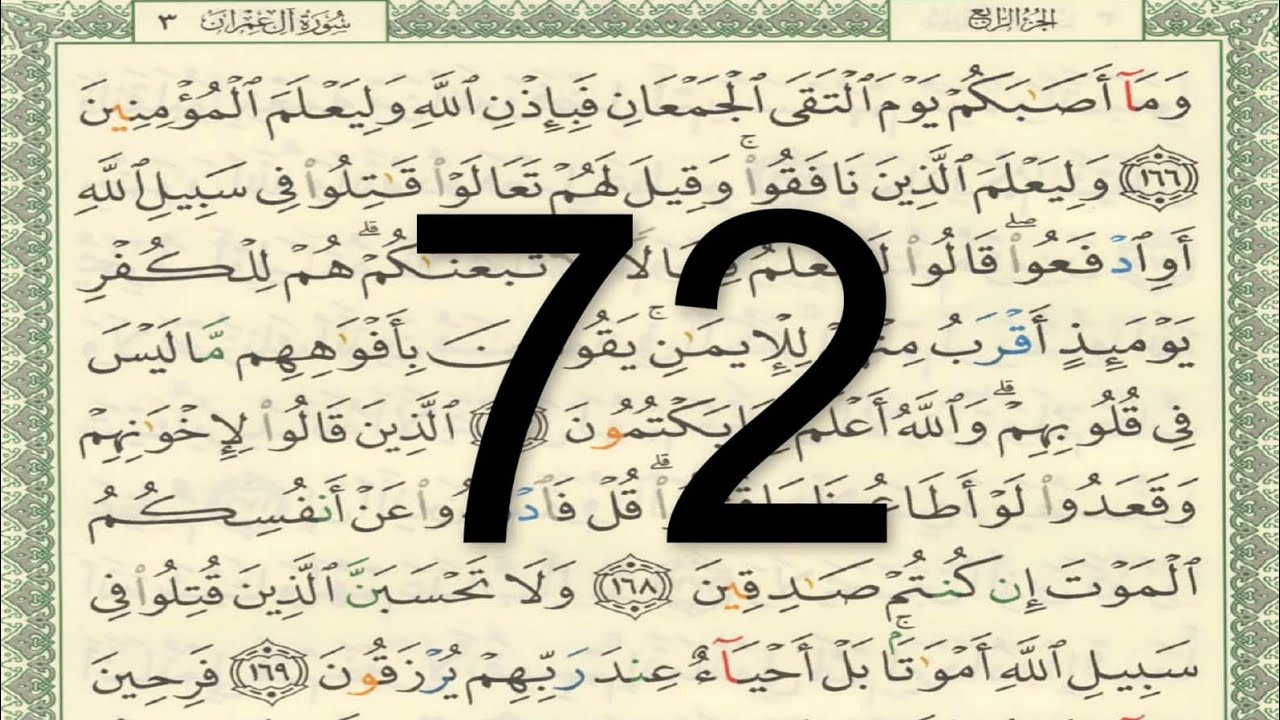 الجزء الرابع
سورة آل عمران ٣
وَمَآ أَصَٰبَكُمۡ يَوۡمَ ٱلۡتَقَى ٱلۡجَمۡعَانِ فَبِإِذۡنِ ٱللَّهِ وَلِيَعۡلَمَ ٱلۡمُؤۡمِنِينَ
١٦٦ وَلِيَعۡلَمَ ٱلَّذِينَ نَافَقُواْۚ وَقِيلَ لَهُمۡ تَعَالَوۡاْ قَٰتِلُواْ فِي سَبِيلِ ٱللَّهِ
أَوِ ٱدۡفَعُواْۖ قَالُواْ هُمۡ لِلۡكُفۡرِ
يَوۡمَئِذٍ أَقۡرَبُ لِلۡإِيمَٰنِۚ بِأَفۡوَٰهِهِم مَّا لَيۡسَ
فِي قُلُوبِهِمۡۗ وَٱللَّهُ أَعۡلَمُ يَكۡتُمُونَ ٱلَّذِينَ قَالُواْ لِإِخۡوَٰنِهِمۡ
وَقَعَدُواْ لَوۡ قُلۡ عَنۡ أَنفُسِكُمُ
ٱلۡمَوۡتَ إِن كُنتُمۡ صَٰدِقِينَ ١٦٨ وَلَا تَحۡسَبَنَّ ٱلَّذِينَ قُتِلُواْ فِي
سَبِيلِ ٱللَّهِ أَمۡوَٰتَۢاۚ بَلۡ أَحۡيَآءٌ عِندَ رَبِّهِمۡ يُرۡزَقُونَ ١٦٩ فَرِحِينَ
72